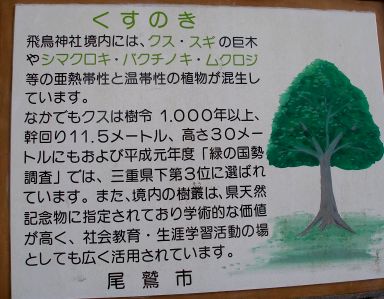 くすのき
飛鳥神社境内には、クス・スギの巨木
やシマクロキ・バクチノキ・ムクロジ
等の亜熱帯性と温帯性の植物が混生し
ています。
なかでもクスは樹令 1.000年以上、
幹回り11.5メートル、高さ30メー
トルにもおよび平成元年度「緑の国勢
調査」では、三重県下第3位に選ばれ
ています。また、境内の樹叢は、県天然
記念物に指定されており学術的な価値
が高く、社会教育・生涯学習活動の場
としても広く活用されています。
尾鷲市